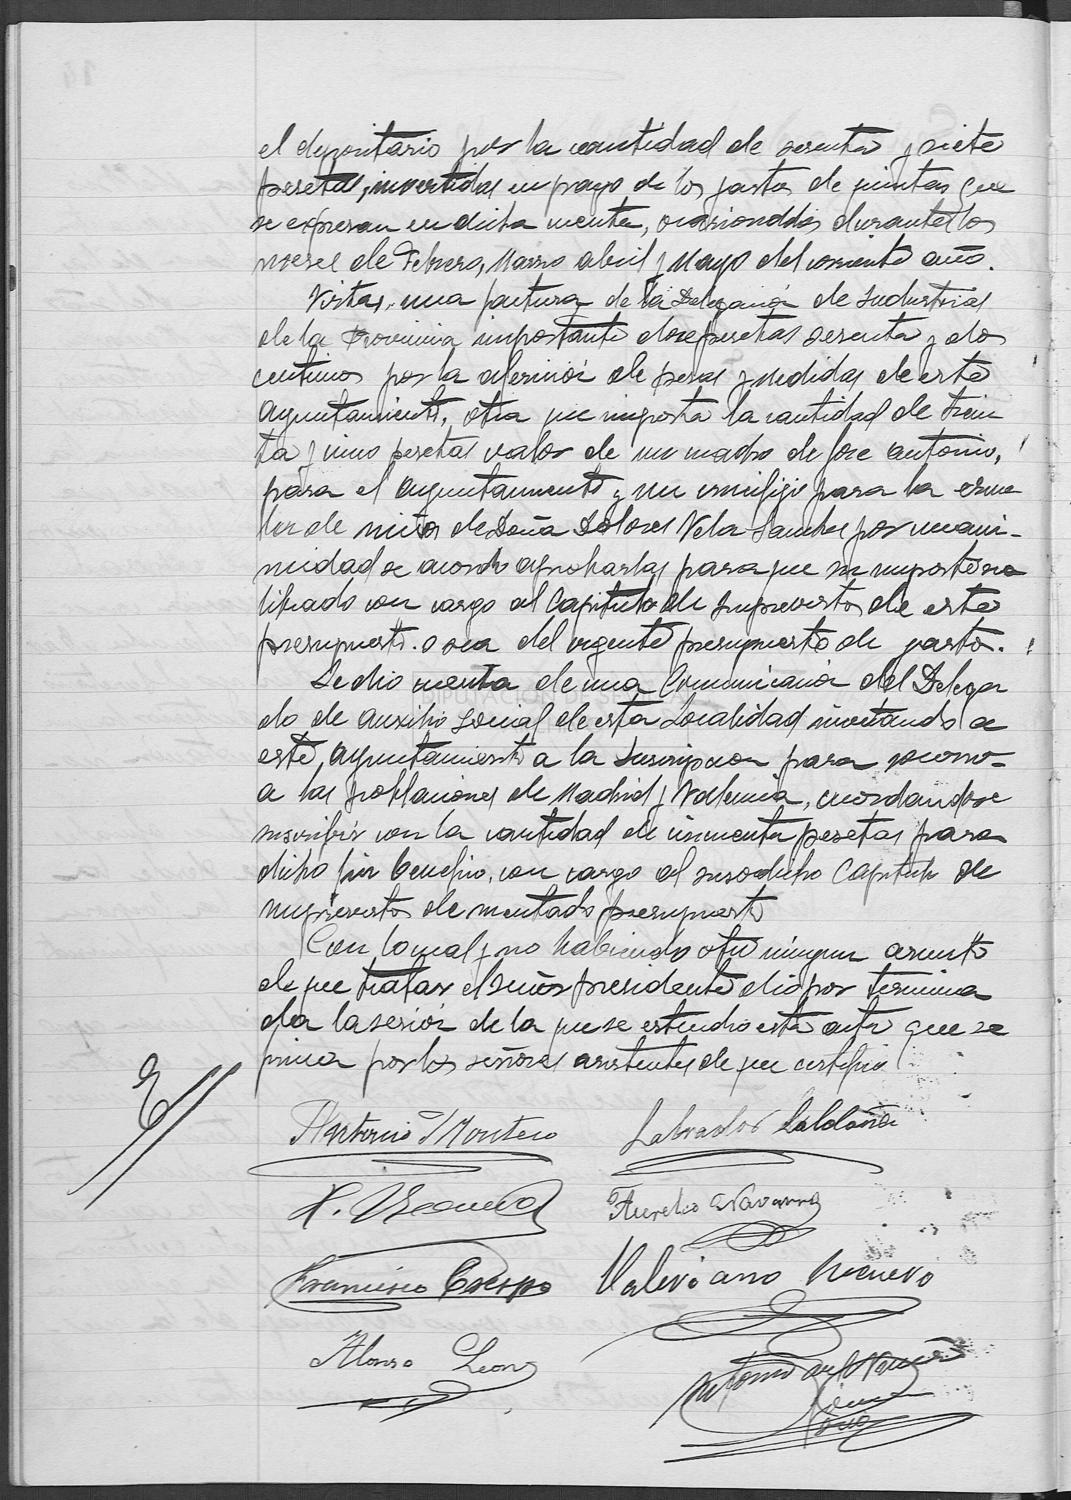 el depositario por la cantidad de sesenta y siete
pesetas, invertidas en pago de los gastos de quintas que
se expresan en dicha cuenta, ocasionados durante los
meses de Febrero, Marzo abril y Mayo del corriente año.
Vistas, una factura de la Delegación de Industrias
de la Provincia importante doce pesetas sesenta y dos
centimos por la aferición de pesas y medidas de este
ayuntamiento, otra que importa la cantidad de trein
ta y cinco pesetas valor de un cuadro de Jose antonio,
para el ayuntamiento y un crucifijo para la escue
la de niños de Doña Dolores Vela Sanchez por unani-
midad se acordó aprobarlas para que su importe sea
librado con cargo al Capitulo de Imprevistos de este
presupuesto. o sea del vigente presupuesto de gastos.
Se dio cuenta de una Comunicación del Delega
DIPUTACIÓN DE SEVILLA
do de Auxilio Social de esta localidad invitando a
este ayuntamiento a la suscripcion para socorro
a las poblaciones de Madrid y Valencia, acordandose
inscribir con la cantidad de cincuenta pesetas para
dicho fin benefico, con cargo al susodicho Capitulo de
imprevistos de mentado presupuesto
Con lo cual y no habiendo otro ningun asunto
de que tratar el señor presidente dió por termina
da la sesión de la que se extendió esta acta que se
firma por los señores asistentes de que certifico
Antonio Montero Labrador Saldaña
Aurelio Navarro
Francisco Crespo Valeriano Nucuevo
Alonso Leon
Antonio